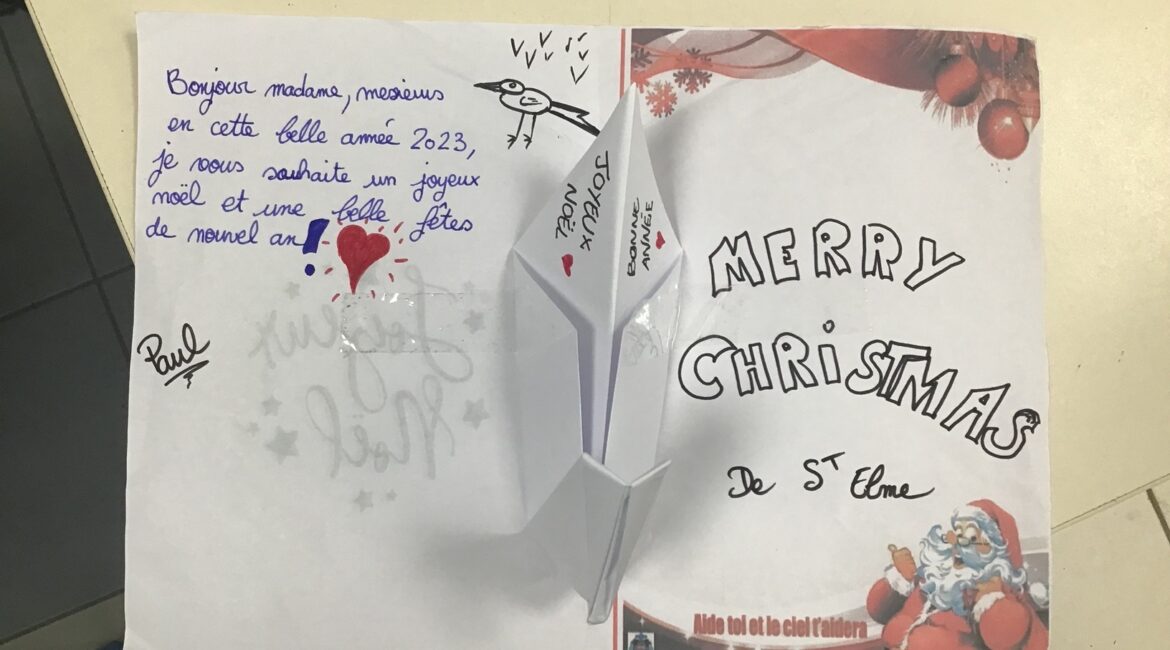 Bonjour madame, messieurs
en cette belle année 2023,
je vous souhaite un joyeux
noël et une belle fêtes
de nouvel an !
Paul
JOYEUX
NOËL
BONNE
ANNÉE
Joyeux
Noël
MERRY
CHRISTMAS
De ST Elme
Aide toi et le ciel t'aidera